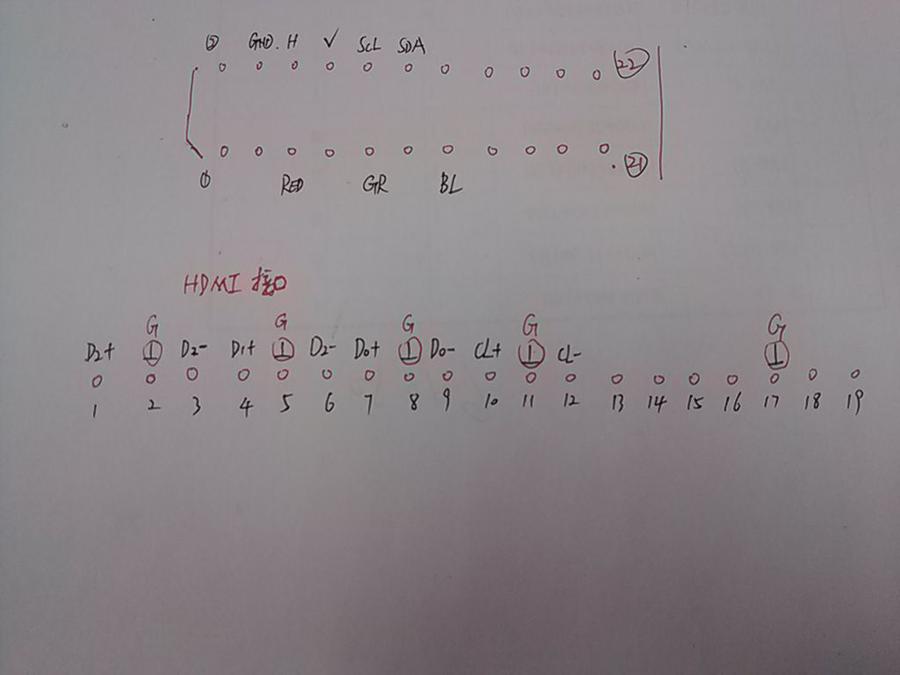 ② GND. H V SCL SDA
22
21
① RED GR BL
HDMI 接口
G G G G G
D2+ 1 D2- D1+ 1 D2- D0+ 1 D0- CL+ 1 CL- 1
1 2 3 4 5 6 7 8 9 10 11 12 13 14 15 16 17 18 19